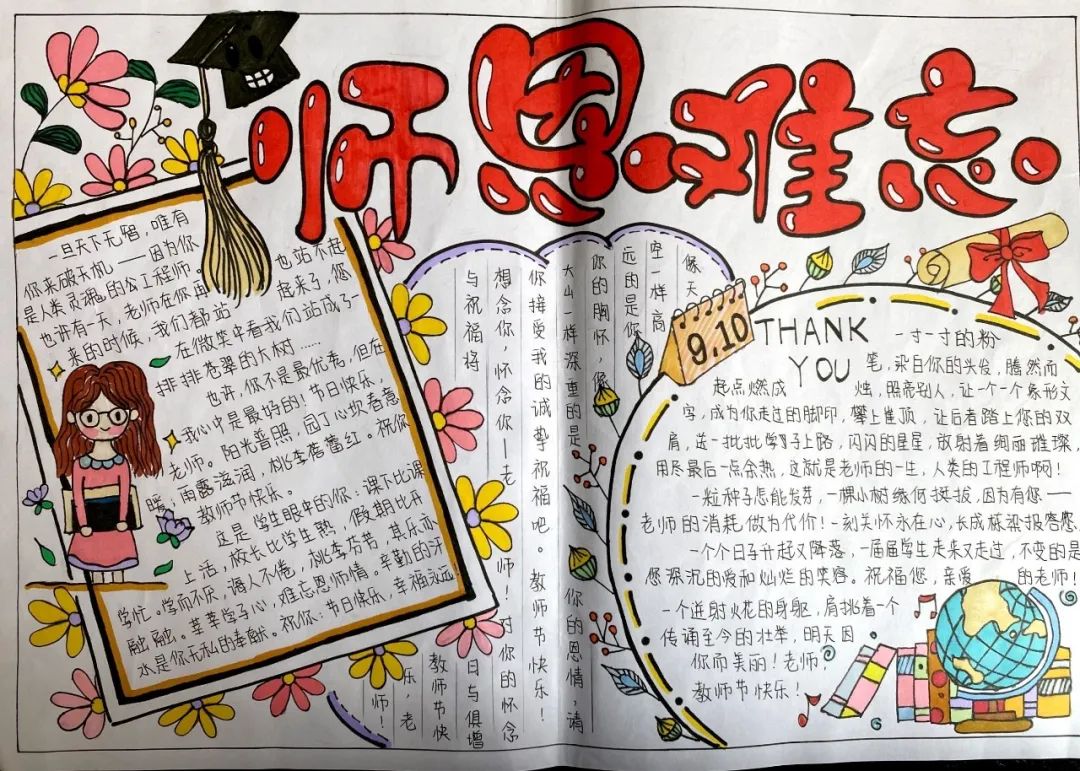 师恩难忘
一旦天下无智，唯有
你来破天机——因为你
是人类灵魂的公工程师。也站不起
也许有一天，老师在你再起来了，您
来的时候，我们都站在微笑中看我们站成了一
排排苍翠的大树……
也讲，你不是最优秀，但在
我心中是最好的！节日快乐，
老师。阳光普照，园丁心坎春意
暖；雨露滋润，桃李蓓蕾红。祝你
教师节快乐。
这是学生眼中的你：课下比课
上活，校长比学生熟，假期比开
学忙。学而不厌，诲人不倦，桃李芬芳，其乐亦
融融。莘莘学子心，难忘恩师情。辛勤的汗
水是你无私的奉献。祝你：节日快乐，幸福永远
像天
空一样高
远的是你
你的胸怀，像
大山一样深重的是你的恩情，请
你接受我的诚挚祝福吧。教师节快乐！
想念你，怀念你——老师！对你的怀念
与祝福将日与俱增
教师节快
乐，老
师！
9.10
THANK
YOU
一寸寸的粉
笔，染白你的头发，腾然而
起点燃成烛，照帝别人，让一个一个象形文
字，成为你走过的脚印，攀上崔顶，让后者踏上您的双
肩，送一批批学子上路，闪闪的星星，放射着绚丽璀璨，
用尽最后一点余热，这就是老师的一生，人类的工程师啊！
一粒种子怎能发芽，一棵小树缘何挺拔，因为有您——
老师的消耗做为代价！一刻关怀永在心，长成栋梁报答您
一个个日子升起又降落，一届届学生走来又走过，不变的是
您深沉的爱和灿烂的笑容。祝福您，亲爱的老师！
一个迸射火花的身躯，肩挑着一个
传诵至今的壮举，明天因
你而美丽！老师
教师节快乐！